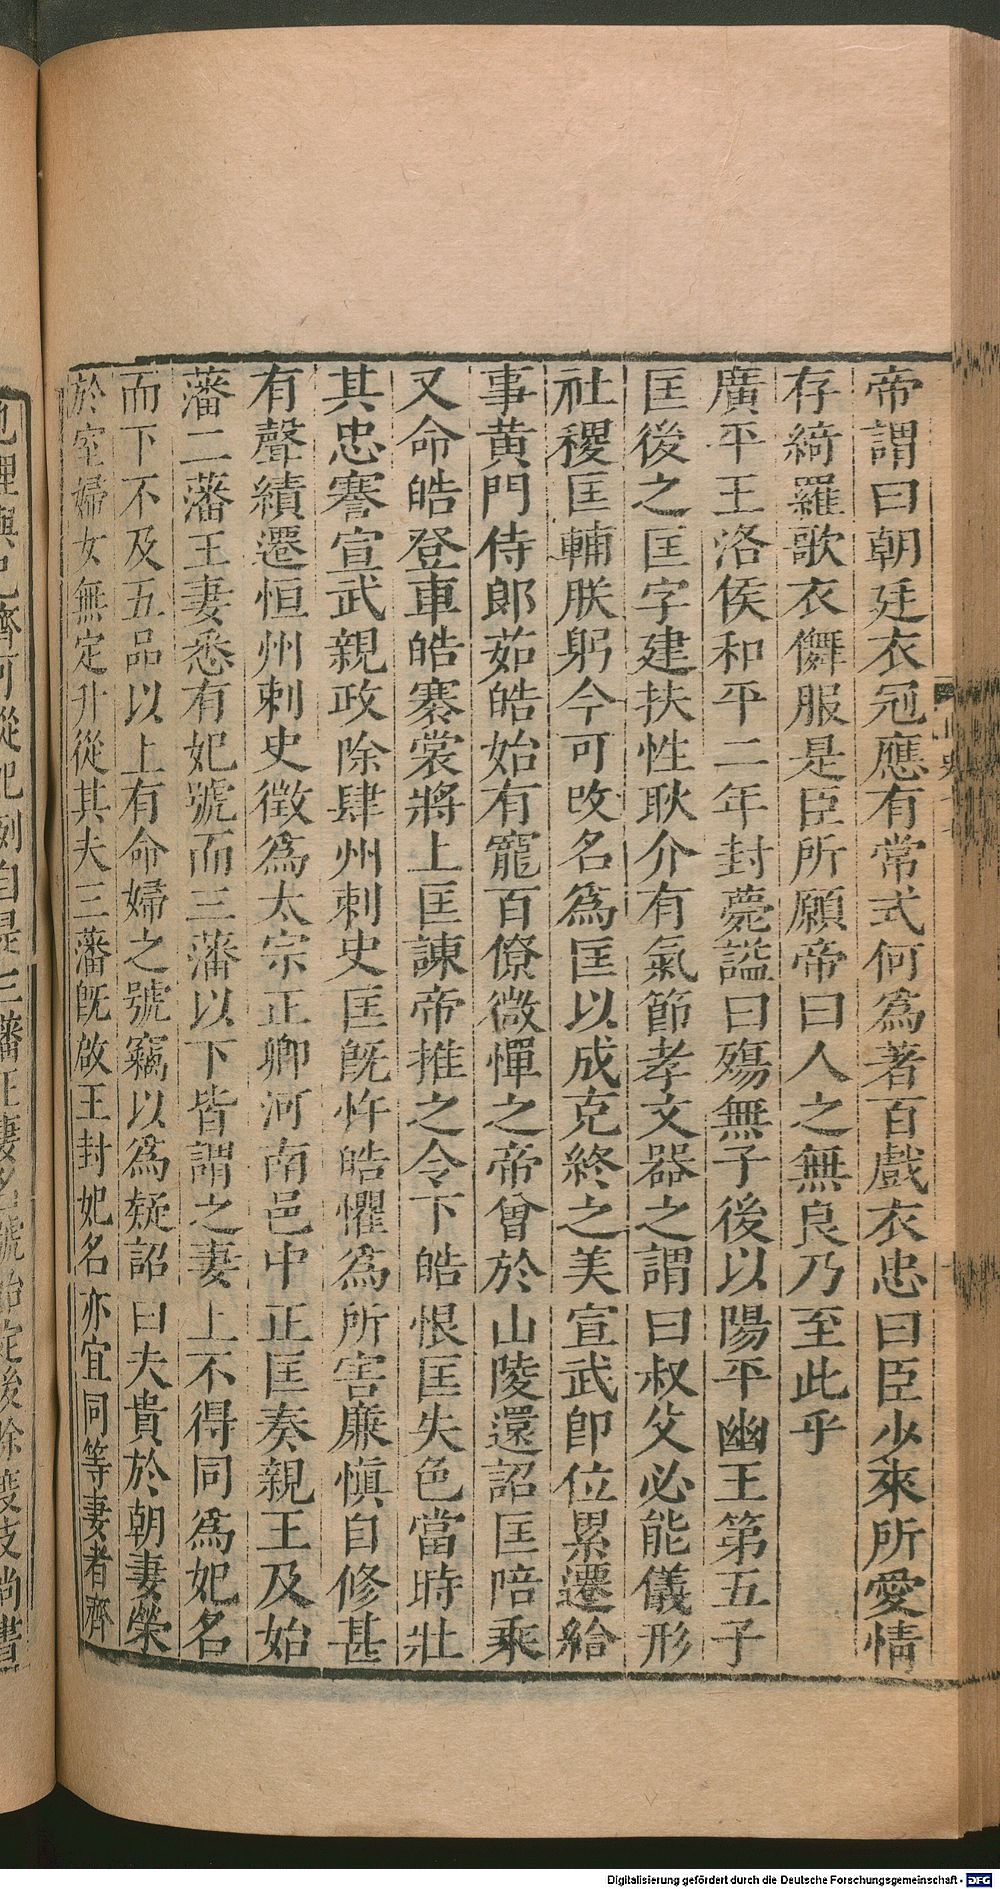 帝謂曰朝廷衣冠應有常式何為著百戲衣忠曰臣少來所愛情
存綺羅歌衣儛服是臣所願帝曰人之無良乃至此乎
廣平王洛侯和平二年封薨謚曰殤無子後以陽平幽王第五子
匡後之匡字建扶性耿介有氣節孝文器之謂曰叔父必能儀形
社稷匡輔朕躬今可改名為匡以成克終之美宣武即位累遷給
事黃門侍郎茹皓始有寵百僚微憚之帝曾於山陵還詔匡陪乘
又命皓登車皓褰裳將上匡諫帝推之令下皓恨匡失色當時壯
其忠謇宣武親政除肆州刺史匡旣忤皓懼為所害廉慎自修甚
有聲績遷恒州刺史徵為太宗正卿河南邑中正匡奏親王及始
藩二藩王妻悉有妃號而三藩以下皆謂之妻上不得同為妃名
而下不及五品以上有命婦之號竊以為疑詔曰夫貴於朝妻榮
於室婦女無定升從其夫三藩旣啟王封妃名亦宜同等妻者齊
也理與己齊可從妃例自是三藩王妻名號始定後除度支尚書
Digitalisierung gefördert durch die Deutsche Forschungsgemeinschaft - DFG